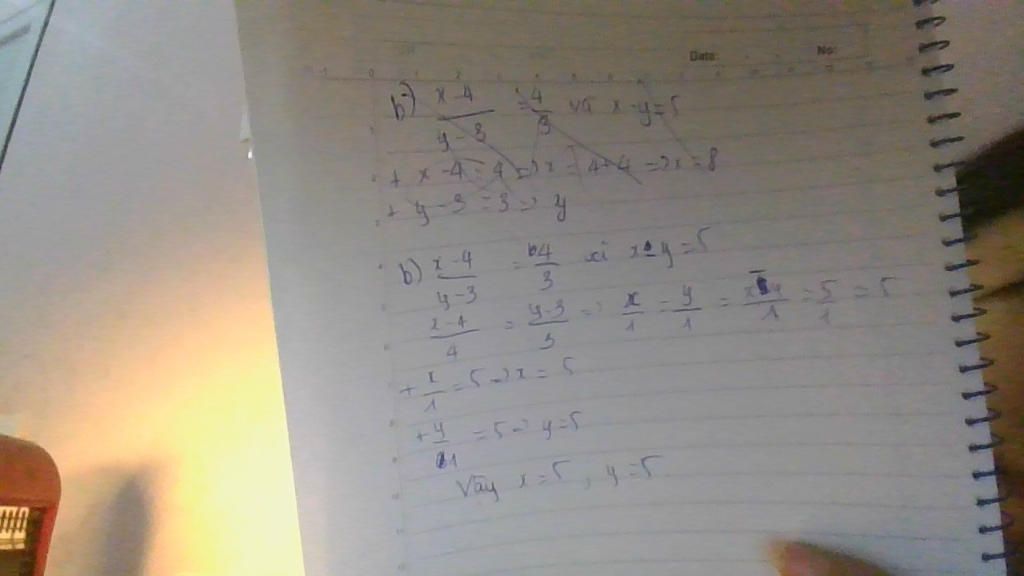 Date: No:
b) x-4/y-3 = 4/3 và x-y=5
+ x-4=4 => x=4+4 => x=8
+ y-3=3 => y
b) x-4/y-3 = 4/3 x-y=5
x-4/4 = y-3/3 => x/1 = y/1 = x-y/1 = 5/1 = 5
+ x/1 = 5 => x = 5
+ y/1 = 5 => y = 5
Vậy x=5, y=5